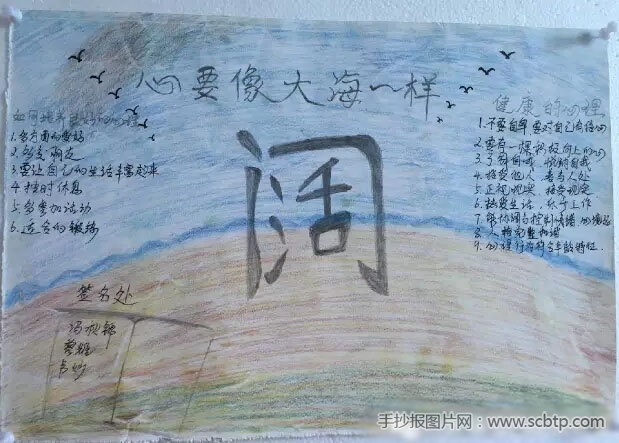 心要像大海一样
阔
如何培养良好的心理
1.多方面的爱好
2.多交朋友
3.要让自己的生活丰富起来
4.按时休息
5.多参加活动
6.适当的锻炼
签名处
健康的心理
1.不要自卑 要对自己有信心
2.要有一颗积极向上的心
3.了解自我 悦纳自我
4.接受他人 善与人处
5.正视现实 接受现实
6.热爱生活 乐于工作
7.能协调与控制情绪
8.人格完整和谐
9.心理行为符合年龄特征.
手抄报图片网:www.scbtp.com